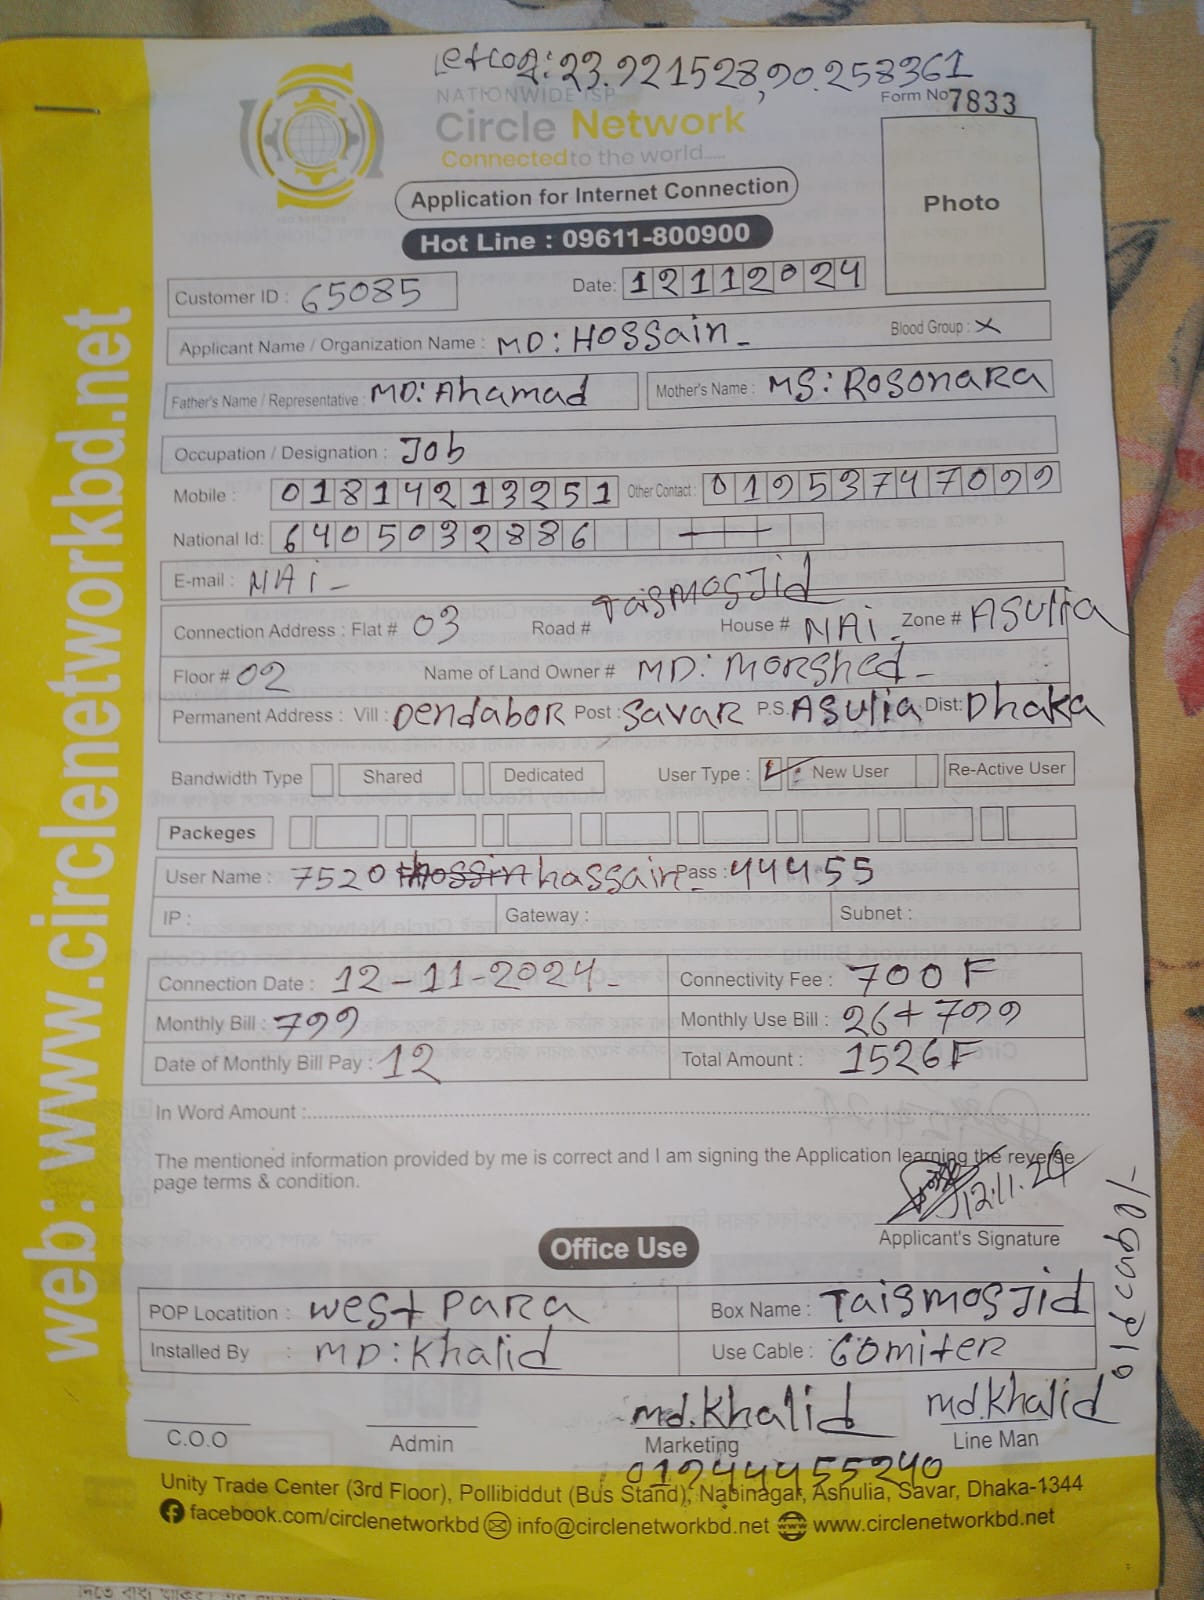 Letlog: 23.921528,90.258361
NATIONWIDE ISP
Form No 7833
Circle Network
Connected to the world.....
Application for Internet Connection
Photo
Hot Line : 09611-800900
Customer ID : 65085 Date: 12112024
Applicant Name / Organization Name : MD: HOSSain Blood Group : X
Father's Name / Representative : MD: Ahamad Mother's Name : MS: ROSONARA
Occupation / Designation : JOb
Mobile : 01814213251 Other Contact : 01953747099
National Id: 6405032886
E-mail : NAi
Connection Address : Flat # 03 Road # TaiSMOSJid House # NAi Zone # ASULIA
Floor # 02 Name of Land Owner # MD: Morshed
Permanent Address : Vill : DendaboR Post : SavaR P.S. ASulia Dist: Dhaka
Bandwidth Type Shared Dedicated User Type : New User Re-Active User
Packeges
User Name : 7520 hossain Pass : 44455
IP : Gateway : Subnet :
Connection Date : 12-11-2024 Connectivity Fee : 700 F
Monthly Bill : 799 Monthly Use Bill : 26+799
Date of Monthly Bill Pay : 12 Total Amount : 1526F
In Word Amount :
The mentioned information provided by me is correct and I am signing the Application learning the reverse
page terms & condition.
12.11.24
Applicant's Signature
Office Use
POP Locatition : West PaRa Box Name : TaiSMOSJid
Installed By : MD: Khalid Use Cable : 60miteR
old cable/-
md.Khalid md.Khalid
C.O.O Admin Marketing Line Man
01944455240
Unity Trade Center (3rd Floor), Pollibiddut (Bus Stand), Nabinagar, Ashulia, Savar, Dhaka-1344
facebook.com/circlenetworkbd info@circlenetworkbd.net www.circlenetworkbd.net
web: www.circlenetworkbd.net